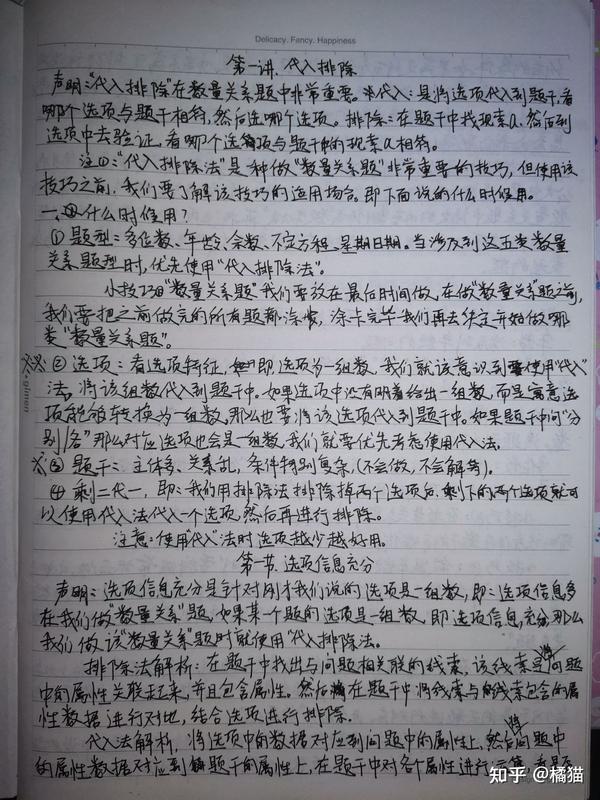 Delicacy. Fancy. Happiness
第一讲、代入排除
声明:“代入排除”在数量关系题中非常重要。代入:是将选项代入到题干,看
哪个选项与题干相符,然后选哪个选项。排除:在题干中找观察a,然后到
选项中去验证,看哪个选项与题干中的观察a相符。
注①:“代入排除法”是一种做“数量关系题”非常重要的技巧,但使用该
技巧之前,我们要了解该技巧的运用场合。即下面说的什么时候用。
一、什么时候用?
①题型:多位数、年龄、余数、不定方程、星期日期。当涉及到这五类数量
关系题型时,优先使用“代入排除法”。
小技巧:“数量关系题”我们要放在最后时间做,在做“数量关系”题之前,
我们要把之前做完的所有题都涂完,涂卡完毕我们再去决定开始做哪
类“数量关系题”。
※※②选项:看选项特征,即选项为一组数,我们就该意识到要使用“代入”
法,将该组数代入到题干中。如果选项中没有明着给出一组数,而是寓意选
项能够转换为一组数,那么也要将该选项代入到题干中。如果题干中问“分
别/各”那么对应选项也会是一组数,我们就要优先考虑使用代入法。
※③题干:主体多、关系乱,条件特别复杂,(不会做,不会解答)。
④剩二代一,即:我们用排除法排除掉两个选项后,剩下的两个选项就可
以使用代入法代入一个选项,然后再进行排除。
注意:使用“代入”法时选项越少越好用。
第一节、选项信息充分
声明:选项信息充分是针对刚才我们说的选项是一组数,即:选项信息多
在我们做“数量关系”题,如果某个题的选项是一组数,即选项信息充分,那么
我们做该“数量关系”题时就使用“代入排除法。
排除法解析:在题干中找出与问题相关联的线索,该线索是将问题
中的属性关联起来,并且包含属性。然后在题干中将线索与线索包含的属
性数据进行对地,结合选项进行排除.
代入法解析,将选项中的数据对应到问题中的属性上,然后将问题中
的属性数据对应到题干的属性上,在题干中对各个属性进行
知乎 @橘猫